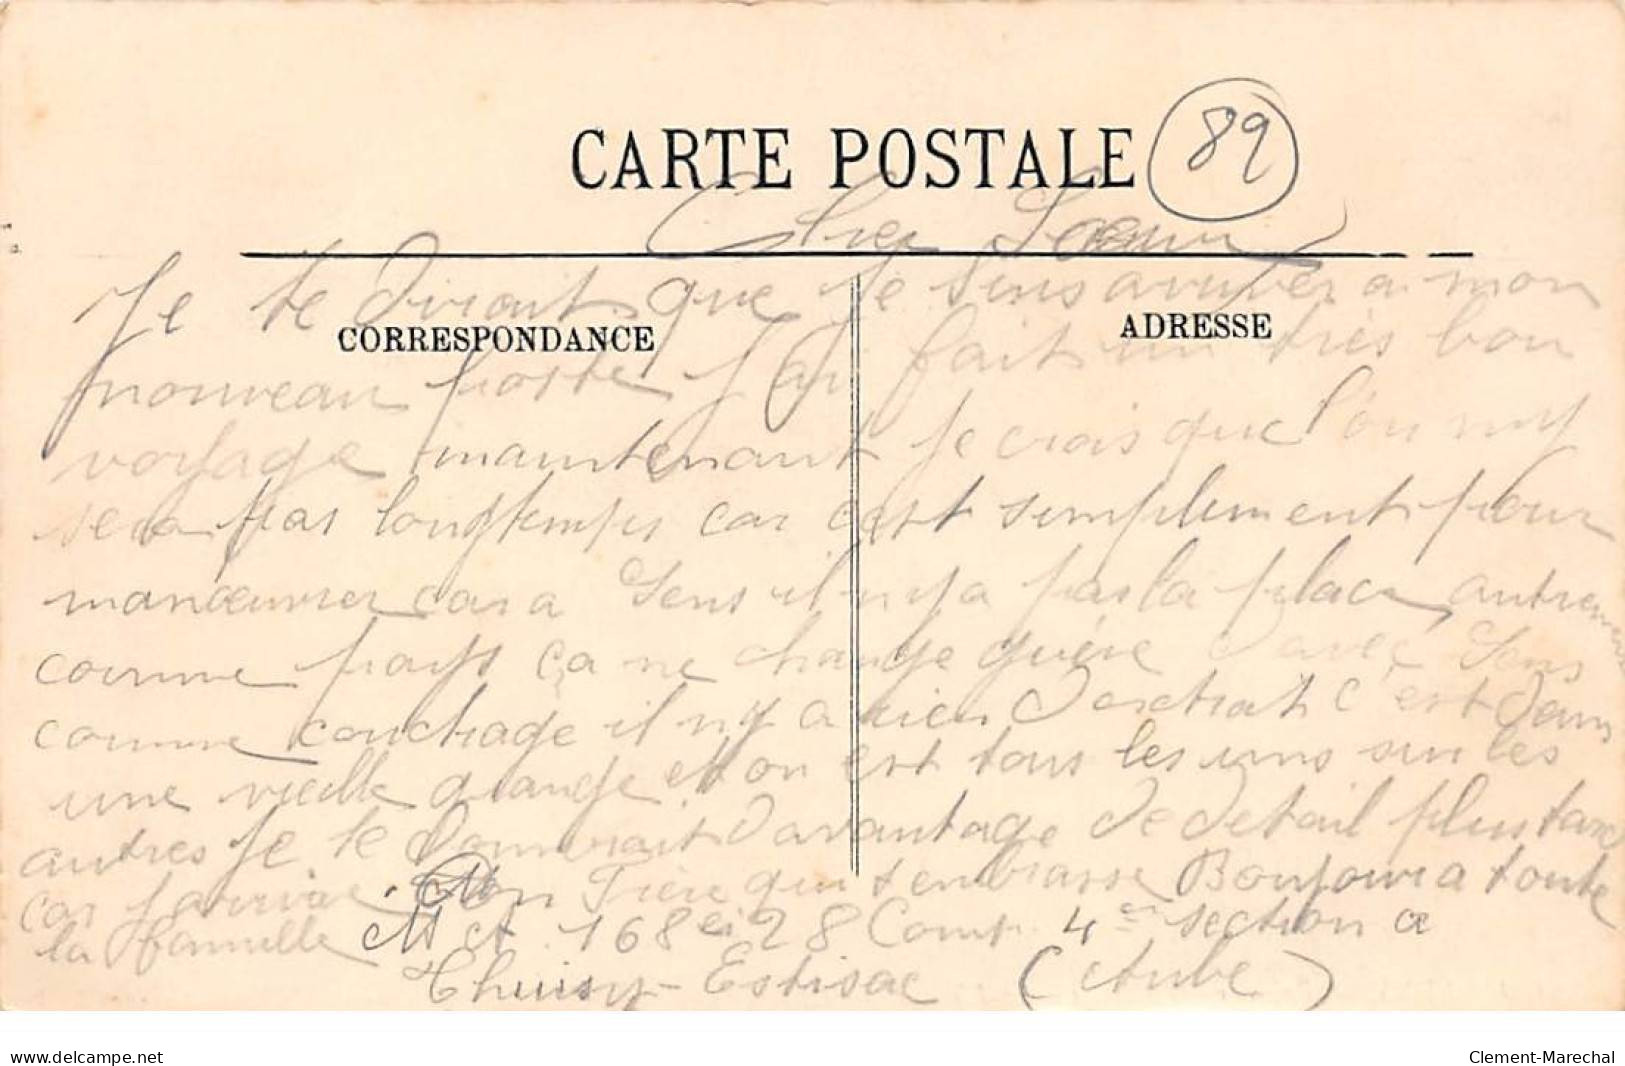 CARTE POSTALE
89
Cher Soeur
CORRESPONDANCE
ADRESSE
Je te dirait que je suis arriver a mon
nouveau poste j'ai fait un très bon
voyage maintenant je crois que l'on ny
sera pas longtemps car c'est simplement pour
manœuvrer car a Sens il n'y a pas la place autrement
comme pays ça ne change guère d'avec Sens
comme couchage il n'y a rien d'extrat c'est dans
une vieille grange et on est tous les uns sur les
autres je te donnerait davantage de detail plus tard
car j'arrive Ton Frère qui t'embrasse Bonjour a toute
la famille
168e 28 Comp. 4e section a
Thuisy-Estisac (Aube)
www.delcampe.net
Clement-Marechal